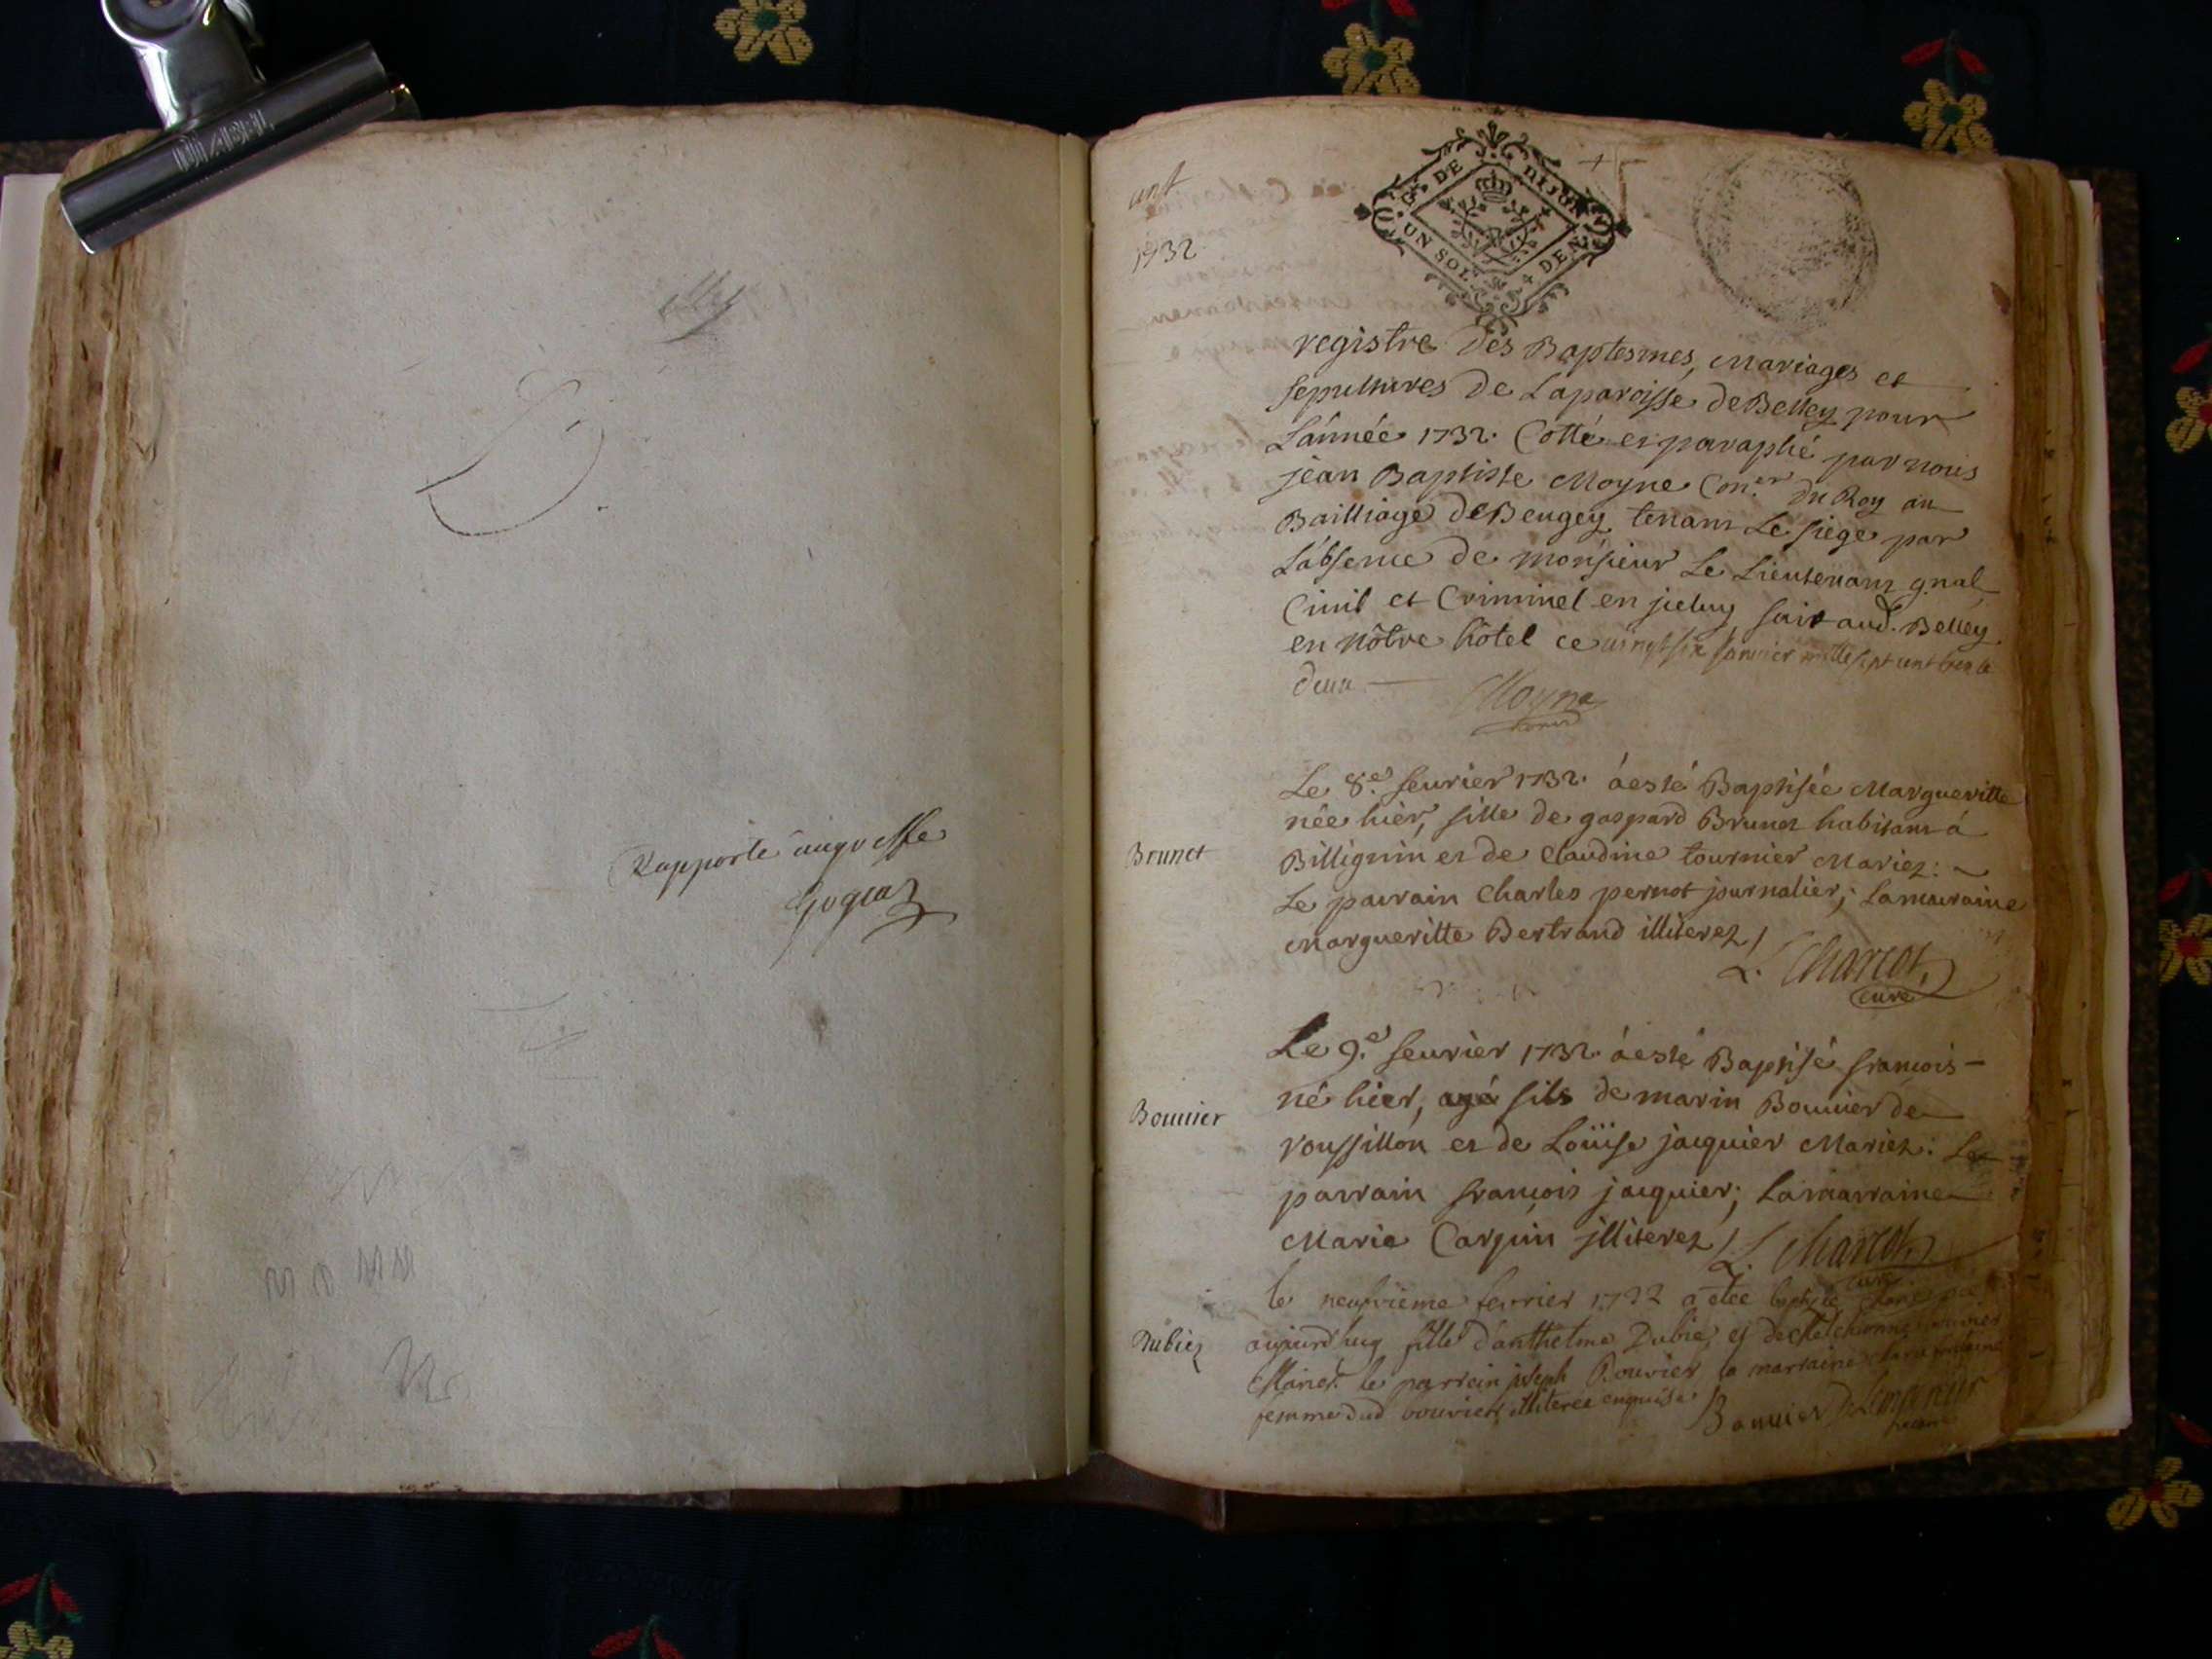 DIABEL
Rapporté au greffe
1732
G.^D DE DIJON
UN SOL 4 DEN
registre des Baptesmes, Mariages et
sepultures de Laparoisse de Belley pour
L'année 1732. Cotté et paraphé par nous
jean Baptiste Moyne Con.er du Roy au
Bailliage de Beugey, tenant Le siege par
L'absence de monsieur Le Lieutenant gnal
Civil et Criminel en jceluy, fait aud. Belley
en nôtre hôtel ce vingt six janvier mille sept cent trente
deux
Moyne
Brunet
Le 8.e feurier 1732. a esté Baptisée Margueritte
née hier, fille de gaspard Brunet habitant à
Billignin et de Claudine tournier Mariez:
Le parrain Charles pernot journalier; Lamarraine
Margueritte Bertrand illiterez /
L. Charcot
curé
Bouuier
Le 9.e feurier 1732. a esté Baptisé françois
né hier, fils de marin Bouuier de
roussillon et de Loüise jacquier Mariez: Le
parrain françois jacquier; Lamarraine
Marie Carquin jlliterez / L. Charcot
curé
Dubiez
le neufvieme fevrier 1732 a étée
aujourdhuy fille d'anthelme Dubiez et de
Mariez. le parrein joseph Bouvier la marraine
femme dud bouvier illiteree enquise
Bouuier